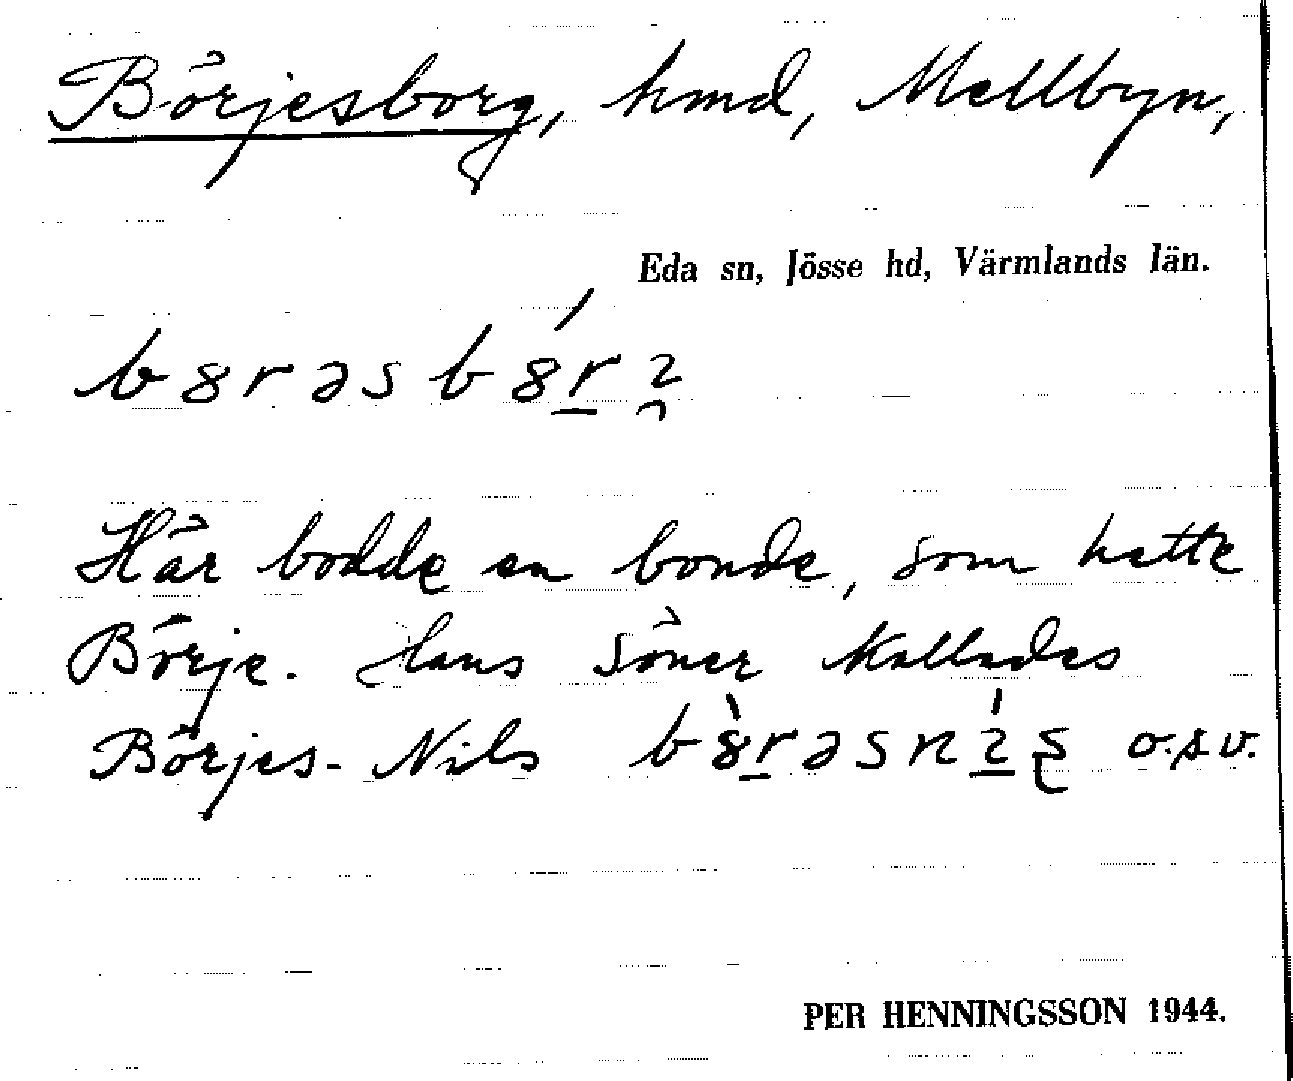 Börjesborg, hmd, Mellbyn,
Eda sn, Jösse hd, Värmlands län.
b8rəsb8́r̲ɂ̯
Här bodde en bonde, som hette
Börje. Hans söner kallades
Börjes-Nils b8̀r̲əsnı̲́ʂ o.s.v.
PER HENNINGSSON 1944.